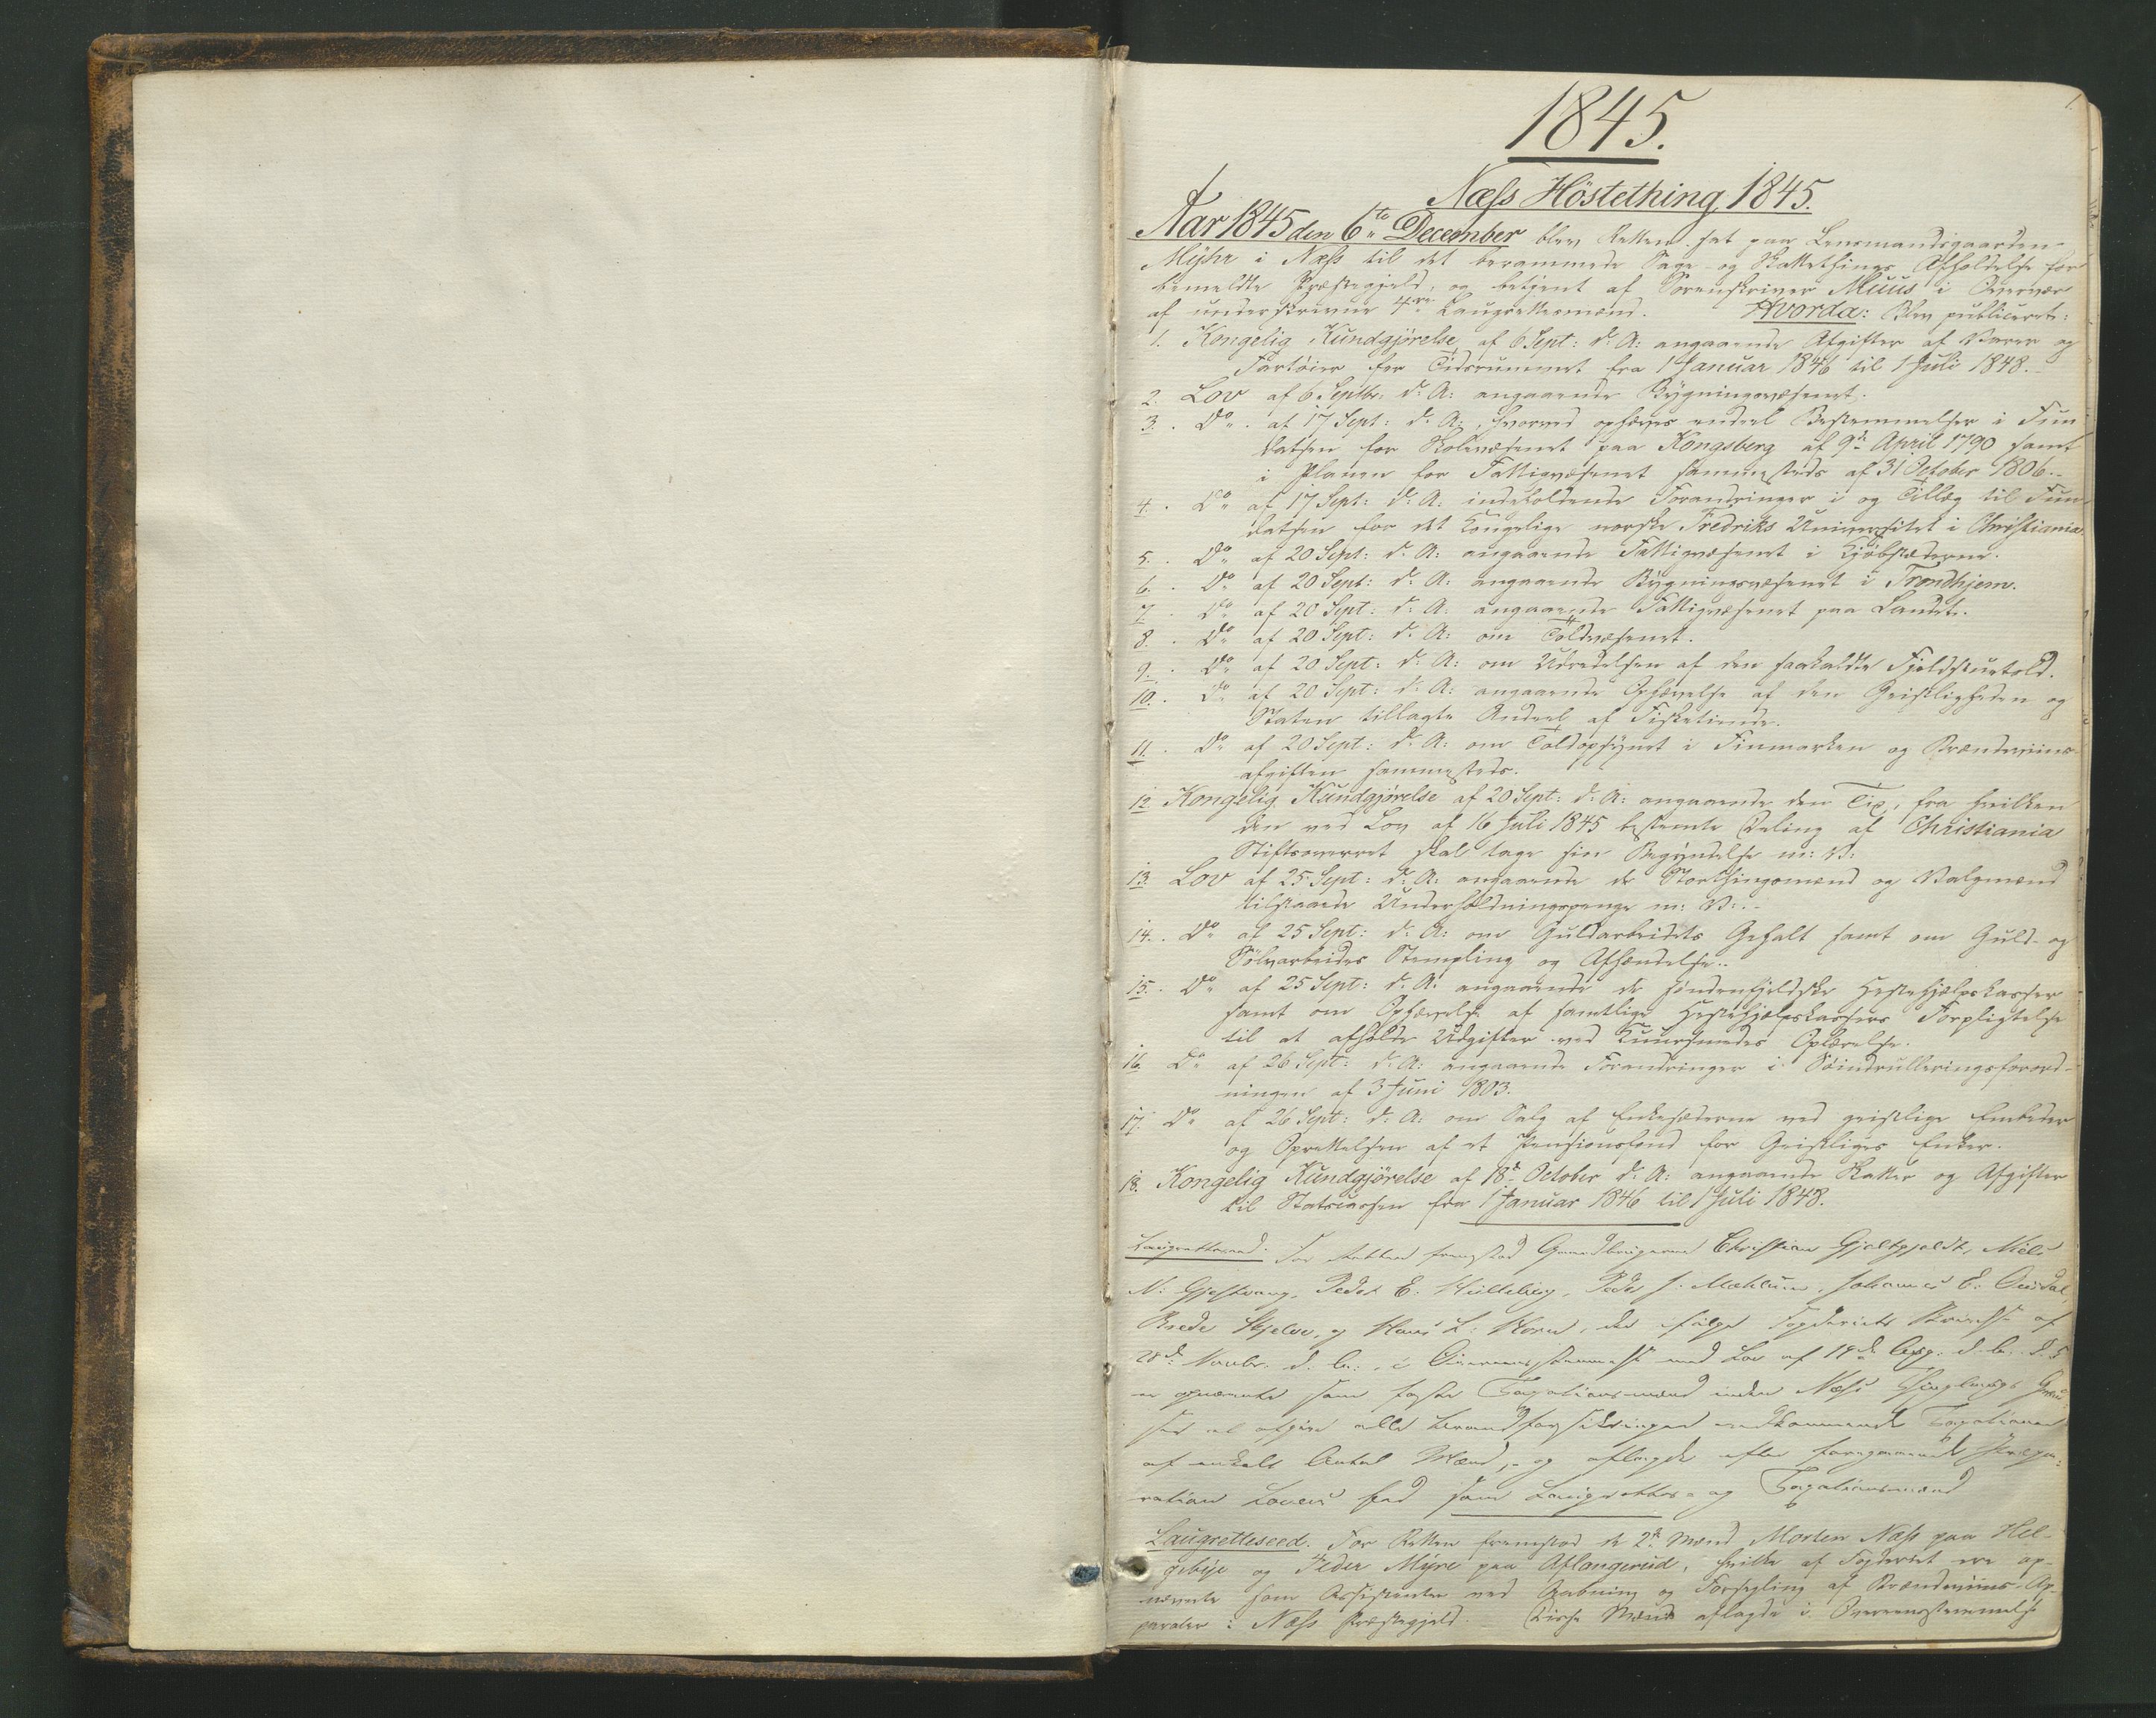 1.
1845.
Næss Höstething 1845.
Aar 1845 den 6te December blev Retten sat paa Lensmandsgaarden
Myhr i Næss til det berammede Sage- og Skattethings Afholdelse for
bemeldte Præstegjeld, og betjent af Sorenskriver Muus i Overvær
af underskrevne 4re Laugrettesmænd. Hvorda: Blev publiceret:
1. Kongelig Kundgjörelse af 6 Sept: d. A: angaaende Afgifter af Varer og
Fartöier for Tidsrummet fra 1 Januar 1846 til 1 Juli 1848.
2. Lov af 6 Septbr. d. A: angaaende Bygningsvæsenet.
3. Do. af 17 Sept: d. A:, hvorved ophæves endeel Bestemmelser i Fun
datsen for Skolevæsenet paa Kongsberg af 9de April 1790 samt
i Planen for Fattigvæsenet sammesteds af 31 October 1806.
4. Do af 17 Sept: d. A: indeholdende Forandringer i og Tillæg til Fun-
datsen for det Kongelige norske Fredriks Universitet i Christiania.
5. Do af 20 Sept: d. A: angaaende Fattigvæsenet i Kjöbstæderne.
6. Do af 20 Sept: d. A: angaaende Bygningsvæsenet i Trondhjem.
7. Do af 20 Sept: d. A: angaaende Fattigvæsenet paa Landet.
8. Do af 20 Sept: d. A: om Toldvæsenet.
9. Do af 20 Sept: d. A: om Udredelsen af den saakaldte Fjeldstuetold.
10. Do af 20 Sept: d. A: angaaende Ophævelse af den Geistligheden og
Staten tillagte Andeel af Fisketiende.
11. Do af 20 Sept: d. A: om Toldopsynet i Finmarken og Brændeviins-
afgiften sammesteds.
12. Kongelig Kundgjörelse af 20 Sept: d. A: angaaende den Tid, fra hvilken
den ved Lov af 16 Juli 1845 bestemte Deling af Christiania
Stiftsoverret skal tage sin Begyndelse m: V:
13. Lov af 25 Sept: d. A: angaaende de Storthingsmænd og Valgmænd
tilstaaede Underholdningspenge m: V:.
14. Do af 25 Sept: d. A: om Guldarbeidets Gehalt samt om Guld- og
Sölvarbeides Stempling og Afhændelse.
15. Do af 25 Sept: d. A: angaaende de söndenfjeldske Hestehjælpskasser
samt om Ophævelse af samtlige Hestehjælpskassers Forpligtelse
til at afholde Udgifter ved Kuursmedes Oplærelse.
16. Do af 26 Sept: d. A: angaaende Forandringer i Söindrulleringsforord-
ningen af 3 Juni 1803.
17. Do af 26 Sept: d. A: om Salg af Enkesæderne ved geistlige Embeder
og Oprettelsen af et Pensionsfond for Geistliges Enker.
18. Kongelig Kundgjörelse af 18de October d. A: angaaende Skatter og Afgifter
til Statscassen fra 1 Januar 1846 til 1 Juli 1848.
Laugretteseed. For Retten fremstod Gaardbrugerne Christian Gjeltgjeldt, Niels
N: Gjestvang, Peder E. Hulleberg, Peder J. Mæhlum, Johannes E.
Brede Skjelve, og Hans L: Horne, der ifölge Fogderiets Skrivelse af
28de Novbr. d. A:, i Overeensstemmelse med Lov af 19de Aug: d. A:
er opnævnte som faste Taxationsmænd inden Næss Thinglaugs
for at afgive alle Brandforsikringen vedkommende Taxationer
af enkelt Antal Mænd, - og aflagde efter foregaaende Præpa-
ration Lovens Eed som Laugrettes- og Taxationsmænd
Laugretteseed. For Retten fremstod de 2de Mænd Morten Næss paa Hel-
gebye og Peder Myre paa Aflangerud, hvilke af Fogderiet ere op-
nævnte som Assistenter ved Aabning og Forsegling af Brændeviins-Ap-
parater i Næss Præstegjeld. Disse Mænd aflagde i Overeensstemmelse